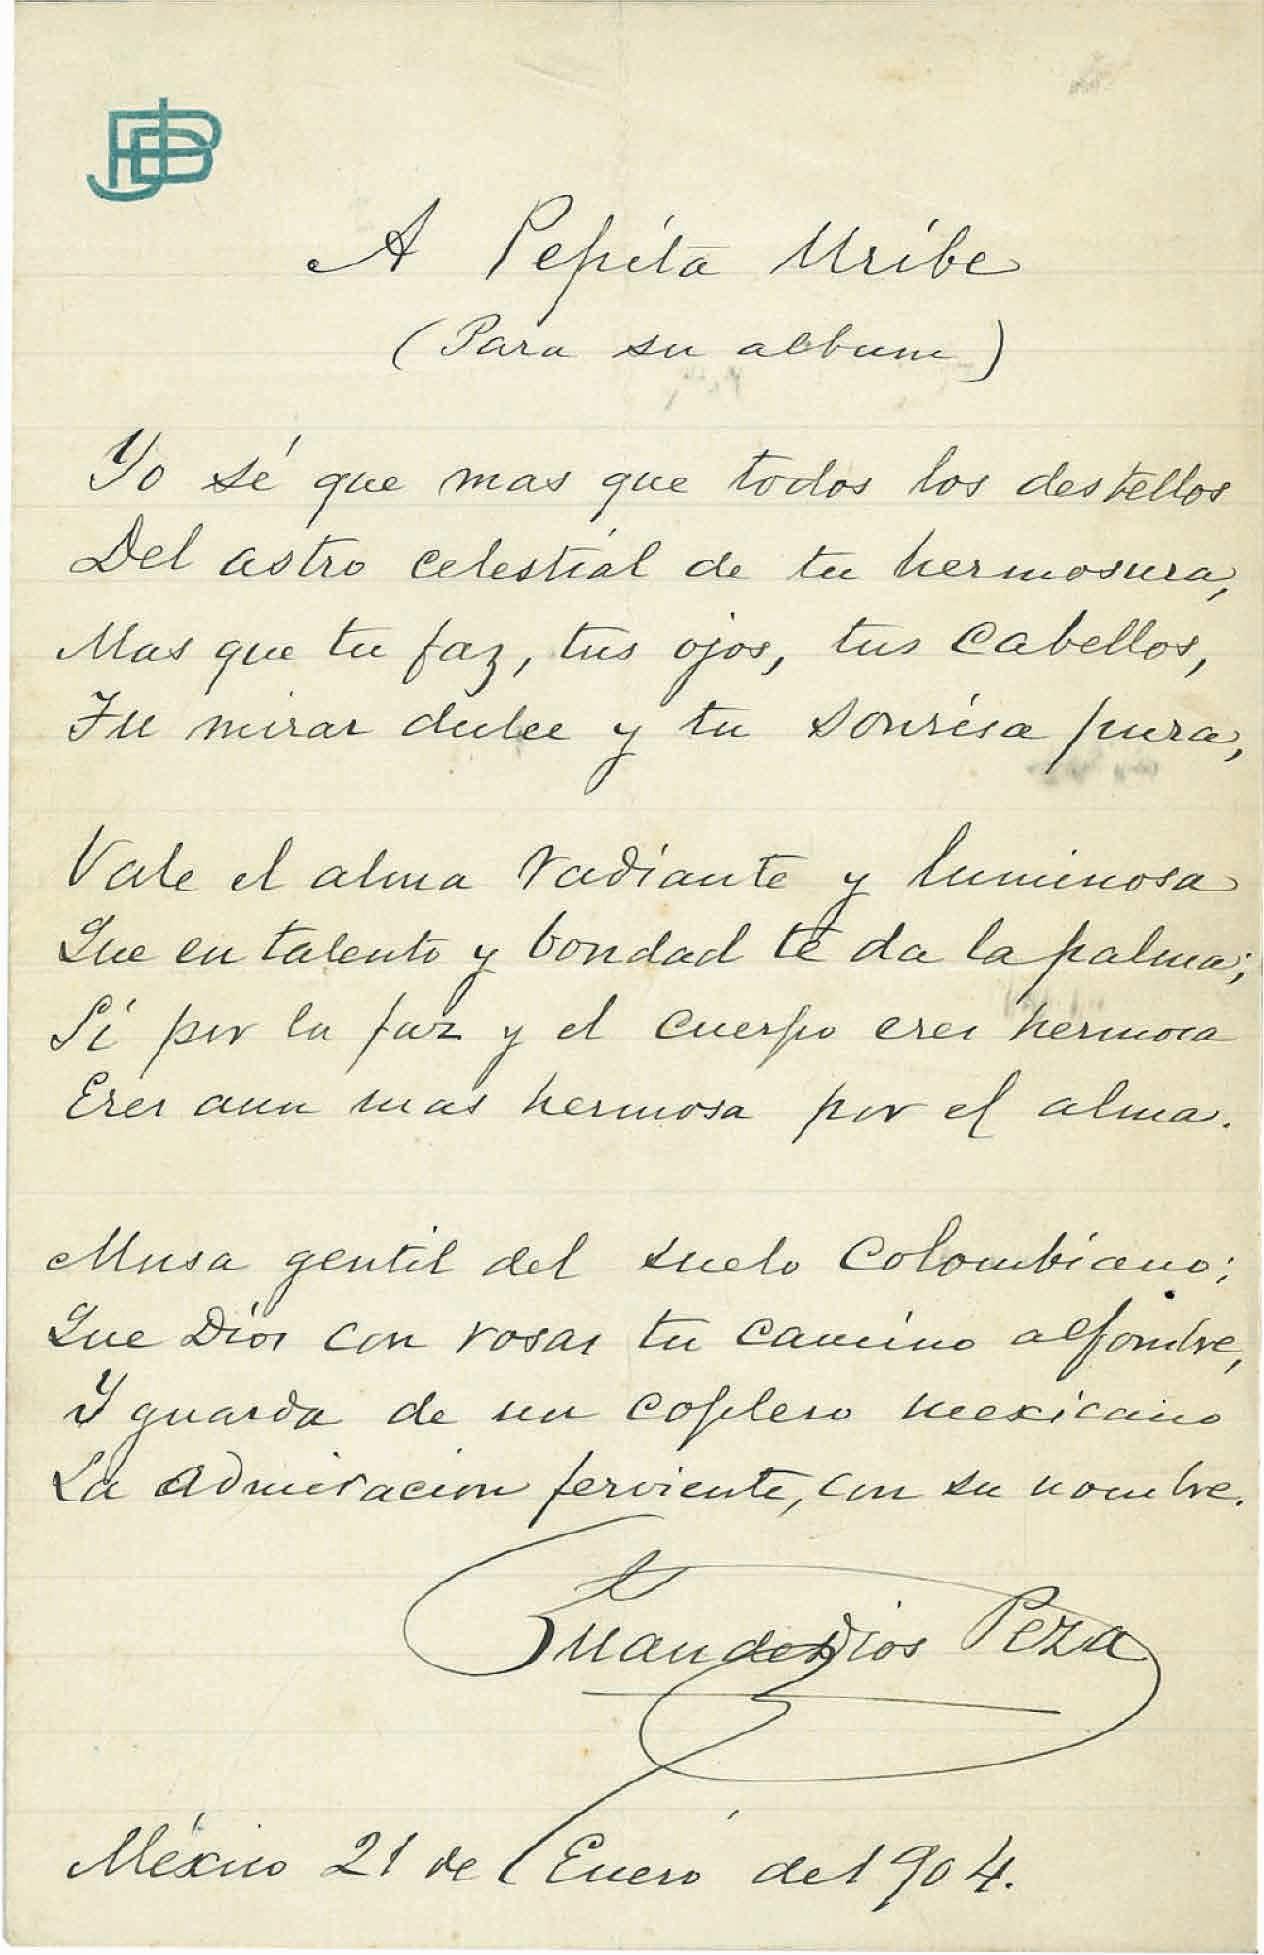 A Pepita Uribe
(Para su album)
Yo sé que mas que todos los destellos
Del astro celestial de tu hermosura,
Mas que tu faz, tus ojos, tus cabellos,
Tu mirar dulce y tu sonrisa pura,
Vale el alma radiante y luminosa
Que en talento y bondad te da la palma;
Si por la faz y el cuerpo eres hermosa
Eres aun mas hermosa por el alma.
Musa gentil del suelo Colombiano;
Que Dios con rosas tu camino alfombre,
Y guarda de un coplero mexicano
La admiracion ferviente, con su nombre.
Juan de Dios Peza
México 21 de Enero de 1904.